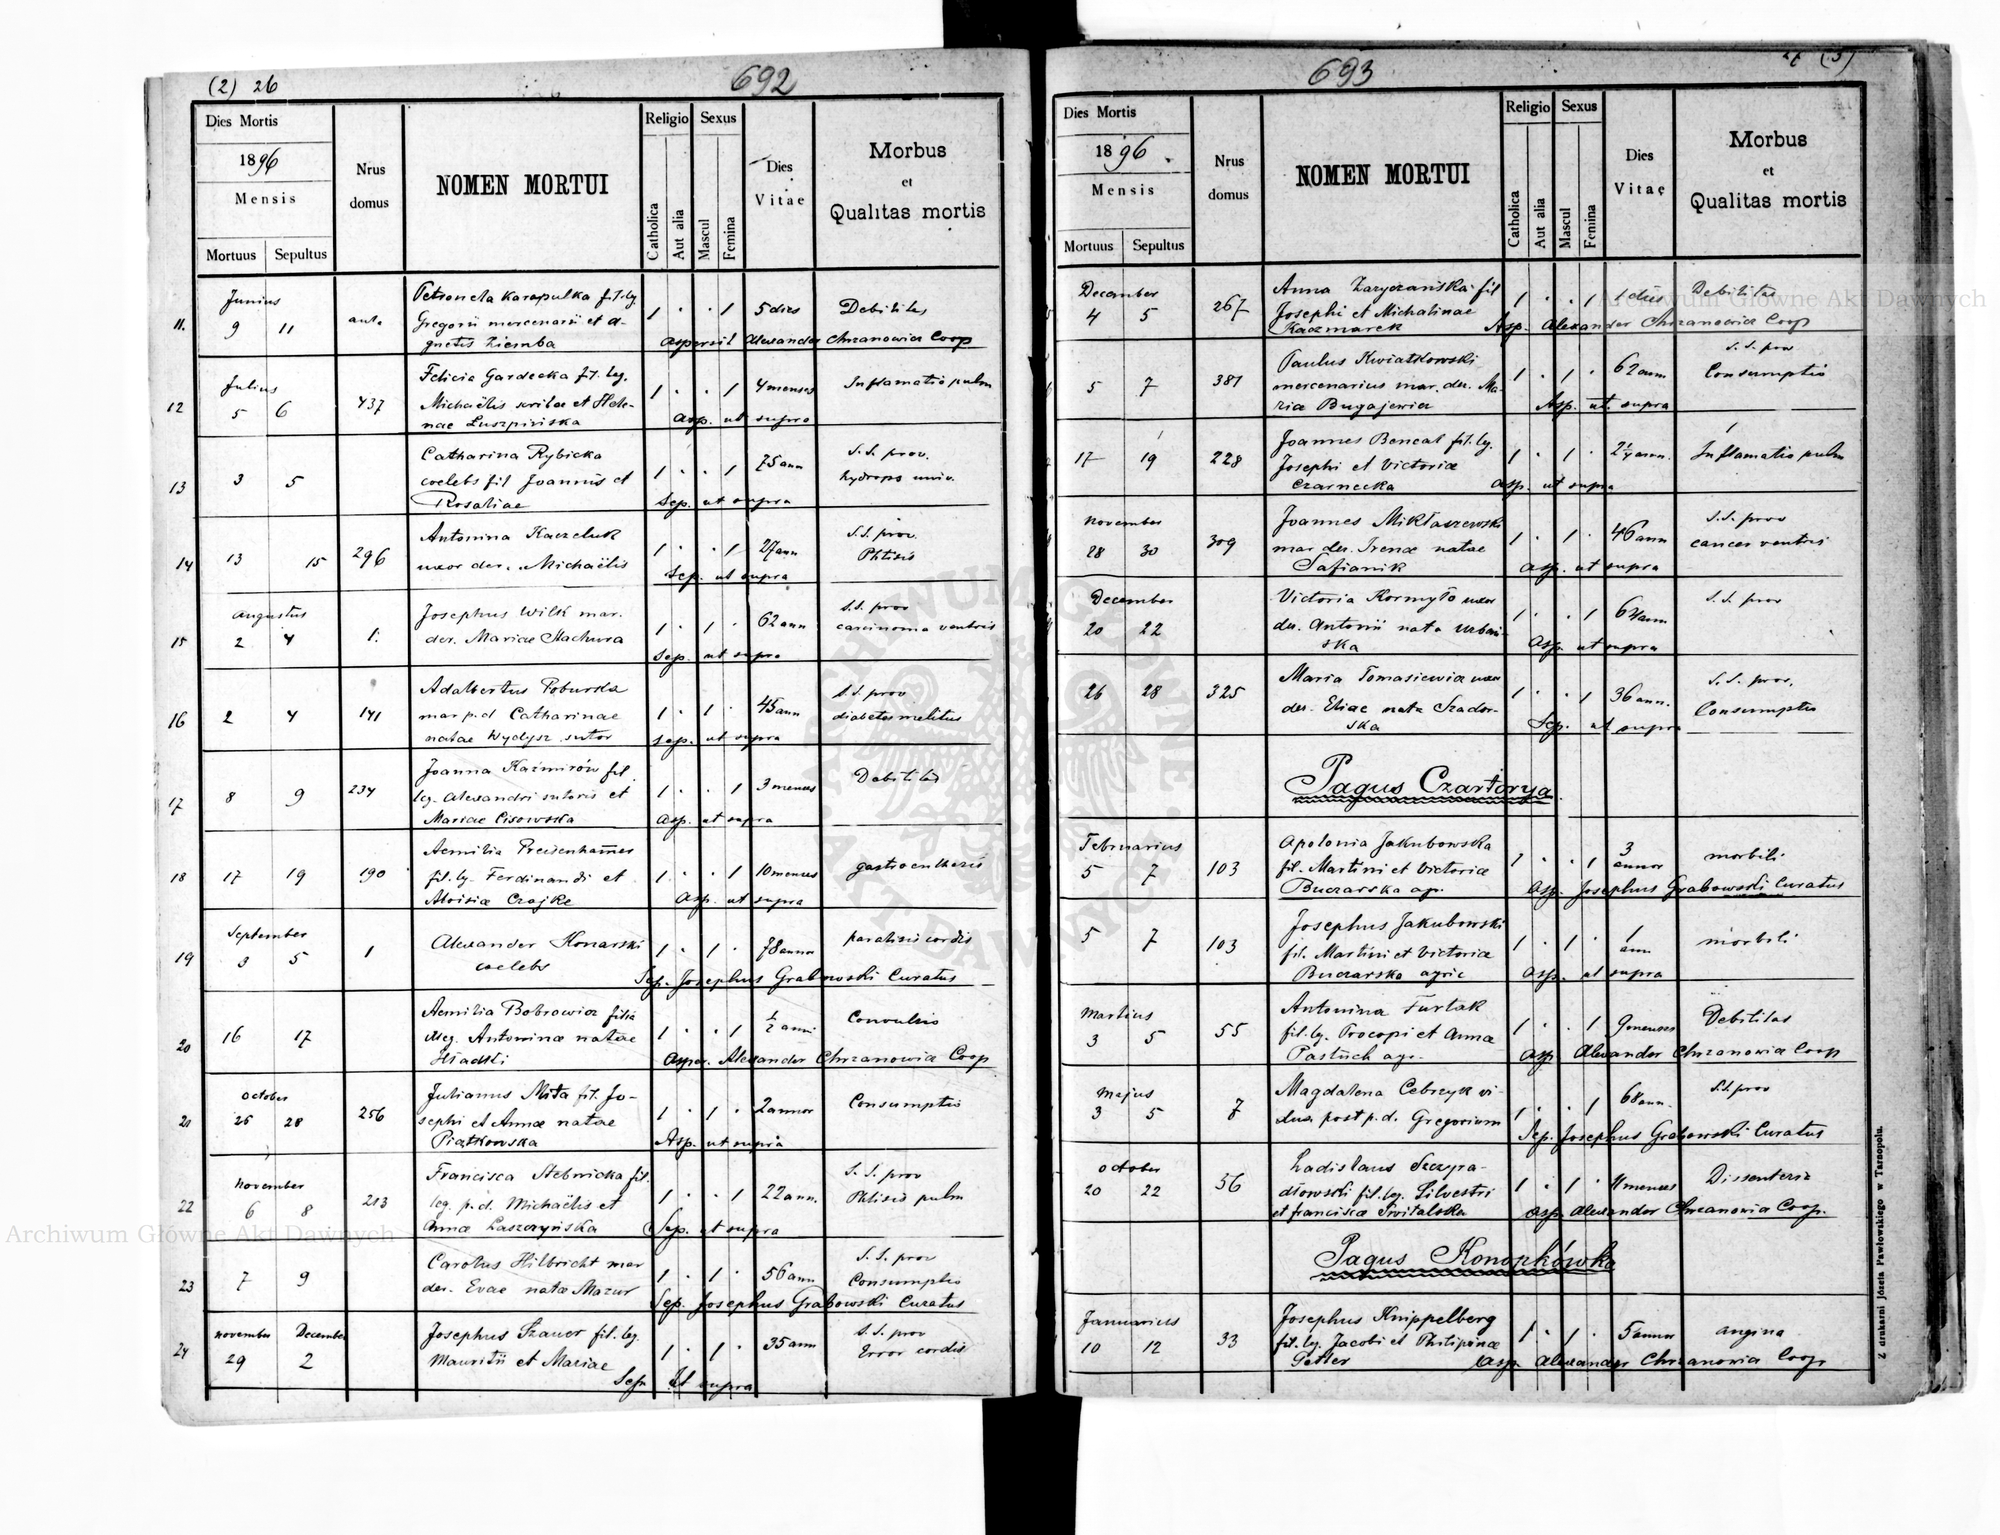 (2) 26
692
Dies Mortis
1896
Mensis
Mortuus Sepultus
Nrus domus
NOMEN MORTUI
Religio
Catholica
Aut alia
Sexus
Mascul
Femina
Dies Vitae
Morbus
et
Qualitas mortis
Junius
11. 9 11 Petronela Karapulka fil. lg.
Gregorii mercenarii et A-
gnetis Ziemba
1 . . 1 5 dies Debilitas
Aspersit Alexander Chrzanowicz Coop
Julius
12 5 6 437 Felicia Gardecka fil. leg.
Michaëlis scribae et Hele-
nae Luszpińska
1 . . 1 4 menses Inflamatio pulm
Asp. ut supra
13 3 5 Catharina Rybicka
coelebs fil Joannis et
Rosaliae
1 . . 1 75 ann S. S. prov.
hydrops univ.
Sep. ut supra
14 13 15 296 Antonina Kaczeluk
uxor der. Michaëlis
1 . . 1 27 ann S. S. prov.
Phtisis
Sep. ut supra
Augustus
15 2 4 1. Josephus Wilk mar.
der. Mariae Stachura
1 . 1 . 62 ann S. S. prov
carcinoma ventris
Sep. ut supra
16 2 4 141 Adalbertus Poburska
mar p. d Catharinae
natae Wydysz sutor
1 . 1 . 45 ann S. S. prov
diabetes melitus
Sep. ut supra
17 8 9 234 Joanna Kaźmirów fil
lg. Alexandri sutoris et
Mariae Cisowska
1 . . 1 3 menses Debilitas
Asp. ut supra
18 17 19 190 Aemilia Preisenhamer
fil. lg. Ferdinandi et
Aloisiae Czajke
1 . . 1 10 menses gastroentheris
Asp. ut supra
September
19 3 5 1 Alexander Konarski
coelebs
1 . 1 . 78 annor paralisis cordis
Sep. Josephus Grabowski Curatus
20 16 17 Aemilia Bobrowicz filia
illeg. Antoninae natae
1 . . 1 1/2 anni Convulsio
Asper. Alexander Chrzanowicz Coop
October
21 26 28 256 Julianus Mita fil. Jo-
sephi et Annae natae
Piątkowska
1 . 1 . 2 annor Consumptio
Asp. ut supra
November
22 6 8 213 Francisca Stebnicka fil.
leg. p. d. Michaëlis et
Annae Laszczyńska
1 . . 1 22 ann. S. S. prov
Phtisis pulm
Sep. ut supra
23 7 9 Carolus Hilbricht mar
der. Evae natae Mazur
1 . 1 . 56 ann S. S. prov
Consumptio
Sep. Josephus Grabowski Curatus
November December
24 29 2 Josephus Szauer fil. lg.
Mauritii et Mariae
1 . 1 . 35 ann S. S. prov
Error cordis
Sep. Ut supra
693
27 (3)
Dies Mortis
1896.
Mensis
Mortuus Sepultus
Nrus domus
NOMEN MORTUI
Religio
Catholica
Aut alia
Sexus
Mascul
Femina
Dies Vitae
Morbus
et
Qualitas mortis
December
4 5 267 Anna Zaryczańska fil
Josephi et Michalinae
Kaczmarek
1 . . 1 1 dies Debilitas
Asp. Alexander Chrzanowicz Coop
5 7 381 Paulus Kwiatkowski
mercenarius mar. der. Ma-
riae Bugajewicz
1 . 1 . 62 ann S. S. prov
Consumptio
Asp. ut. supra
17 19 228 Joannes Bencal fil. lg.
Josephi et Victoriae
Czarnecka
1 . 1 . 2 1/4 ann. Inflamatio pulm
Asp. ut supra
November
28 30 309 Joannes Mikłaszewski
mar der. Irenae natae
Safianik
1 . 1 . 46 ann S. S. prov
cancer ventris
Asp. ut supra
December
20 22 Victoria Kormyło uxor
der. Antonii nata Urbań-
ska
1 . . 1 64 ann S. S. prov
Asp. ut supra
26 28 325 Maria Tomasiewicz uxor
der. Eliae nata Szador-
ska
1 . . 1 36 ann. S. S. prov.
Consumptio
Sep. ut supra
Pagus Czartorya
Februarius
5 7 103 Apolonia Jakubowska
fil. Martini et Victoriae
Buczarska agr.
1 . . 1 3 annor morbili
Asp. Josephus Grabowski Curatus
5 7 103 Josephus Jakubowski
fil. Martini et Victoriae
Buczarska agric
1 . 1 . 1 ann morbili
Asp. ut supra
Martius
3 5 55 Antonina Furtak
fil. lg. Procopi et Annae
Pastuch agr.
1 . . 1 9 menses Debilitas
Asp. Alexander Chrzanowicz Coop
Majus
3 5 7 Magdalena Cebrzyk vi-
dua post p. d. Gregorium
1 . . 1 68 ann. S. S. prov
Sep. Josephus Grabowski Curatus
October
20 22 56 Ladislaus Szczyra-
dłowski fil. lg. Silvestri
et francisca Switalska
1 . 1 . 11 menses Dissenteria
Asp. Alexander Chrzanowicz Coop.
Pagus Konopkówka
Januarius
10 12 33 Josephus Knippelberg
fil. lg. Jacobi et Philipinae
Getler
1 . 1 . 5 annor angina
Asp. Alexander Chrzanowicz Coop
Z drukarni Józefa Pawłowskiego w Tarnopolu.
Archiwum Główne Akt Dawnych
Archiwum Główne Akt Dawnych
ARCHIWUM GŁÓWNE AKT DAWNYCH